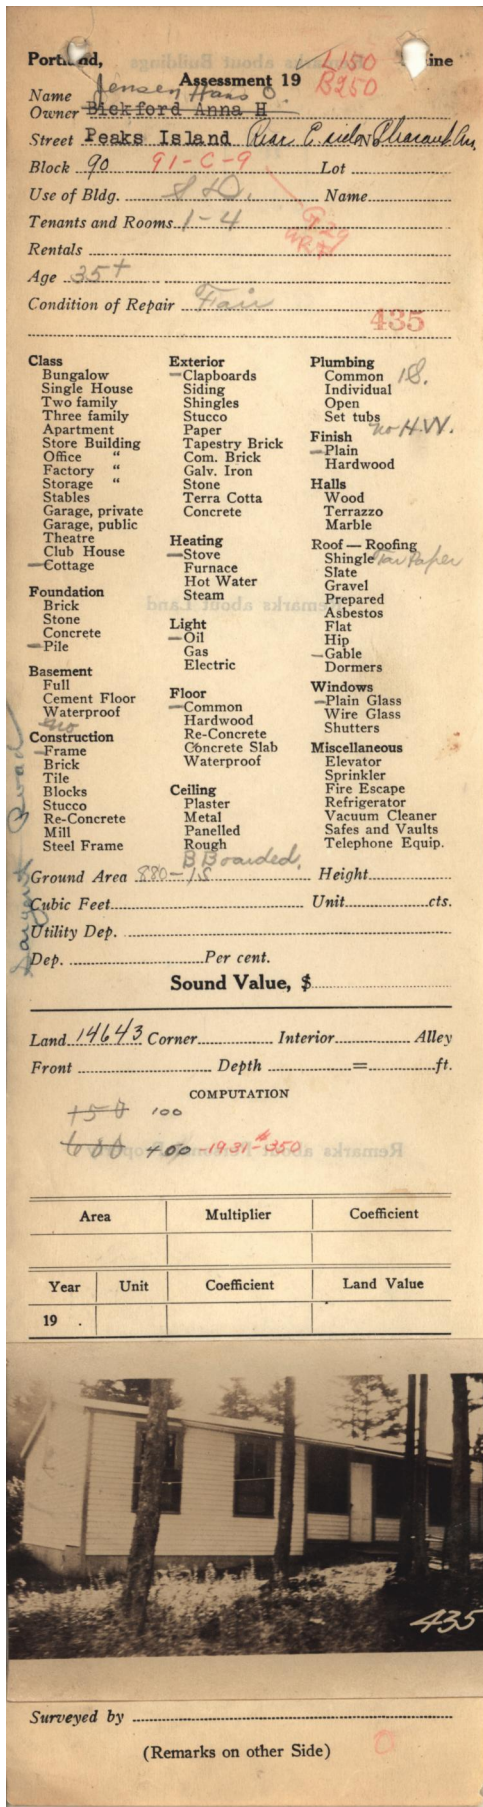 Portland, Maine
L150
Assessment 19
B250
Name Jensen Hans O.
Owner Bickford Anna H
Street Peaks Island Rear E. side No Pleasant Av.
Block 90 91-C-9 Lot
Use of Bldg. S D. Name
Tenants and Rooms 1-4
G29
WR71
Rentals
Age 35+
Condition of Repair Fair
435
Class
Bungalow
Single House
Two family
Three family
Apartment
Store Building
Office "
Factory "
Storage "
Stables
Garage, private
Garage, public
Theatre
Club House
Cottage
Foundation
Brick
Stone
Concrete
Pile
Basement
Full
Cement Floor
Waterproof
no
Construction
Frame
Brick
Tile
Blocks
Stucco
Re-Concrete
Mill
Steel Frame
Exterior
Clapboards
Siding
Shingles
Stucco
Paper
Tapestry Brick
Com. Brick
Galv. Iron
Stone
Terra Cotta
Concrete
Heating
Stove
Furnace
Hot Water
Steam
Light
Oil
Gas
Electric
Floor
Common
Hardwood
Re-Concrete
Concrete Slab
Waterproof
Ceiling
Plaster
Metal
Panelled
Rough
B Boarded.
Plumbing
Common 1S.
Individual
Open
Set tubs
no H.W.
Finish
Plain
Hardwood
Halls
Wood
Terrazzo
Marble
Roof — Roofing
Shingle Tar Paper
Slate
Gravel
Prepared
Asbestos
Flat
Hip
Gable
Dormers
Windows
Plain Glass
Wire Glass
Shutters
Miscellaneous
Elevator
Sprinkler
Fire Escape
Refrigerator
Vacuum Cleaner
Safes and Vaults
Telephone Equip.
Sargent Road
Ground Area 880-1S Height
Cubic Feet Unit cts.
Utility Dep.
Dep. Per cent.
Sound Value, $
Land 14643 Corner Interior Alley
Front Depth = ft.
COMPUTATION
150 100
600 400 -1931-$350
Area Multiplier Coefficient
Year Unit Coefficient Land Value
19 .
435
Surveyed by
(Remarks on other Side)